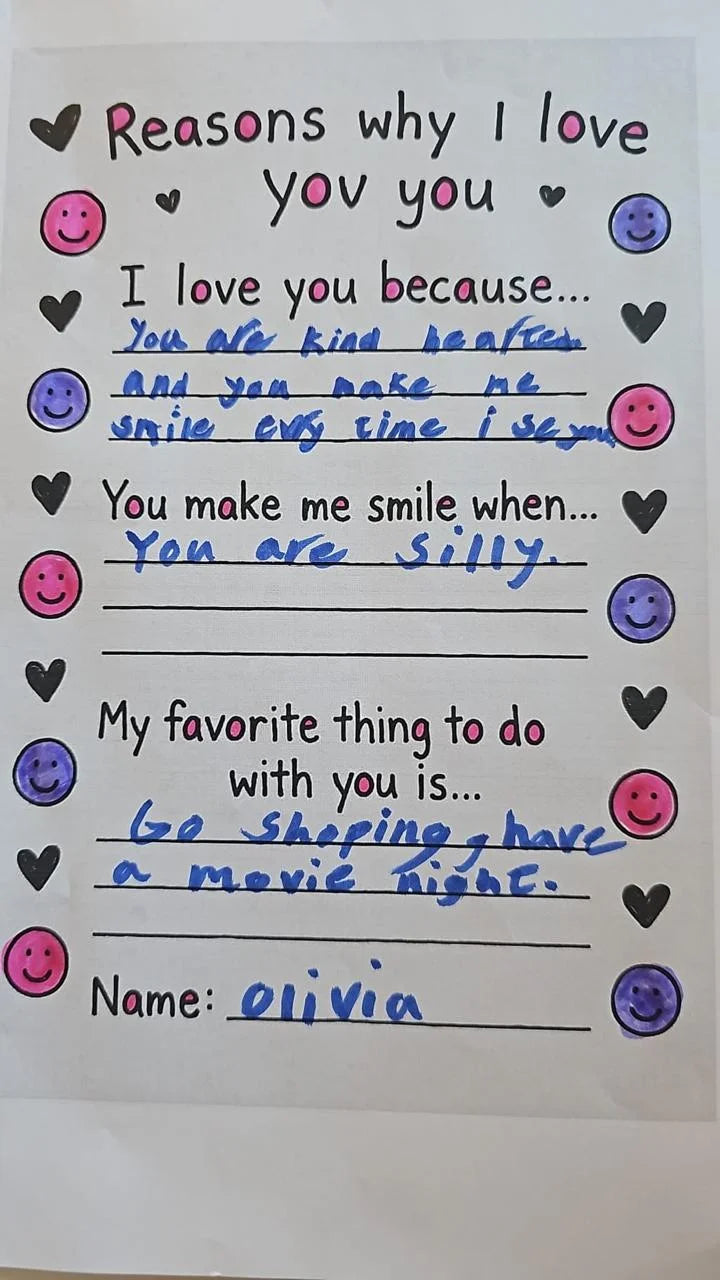 Reasons why I love
you you
I love you because...
You are kind heafted.
and you make me
smile evry time i se you
You make me smile when...
You are silly.
My favorite thing to do
with you is...
Go shoping, have
a movie night.
Name: olivia